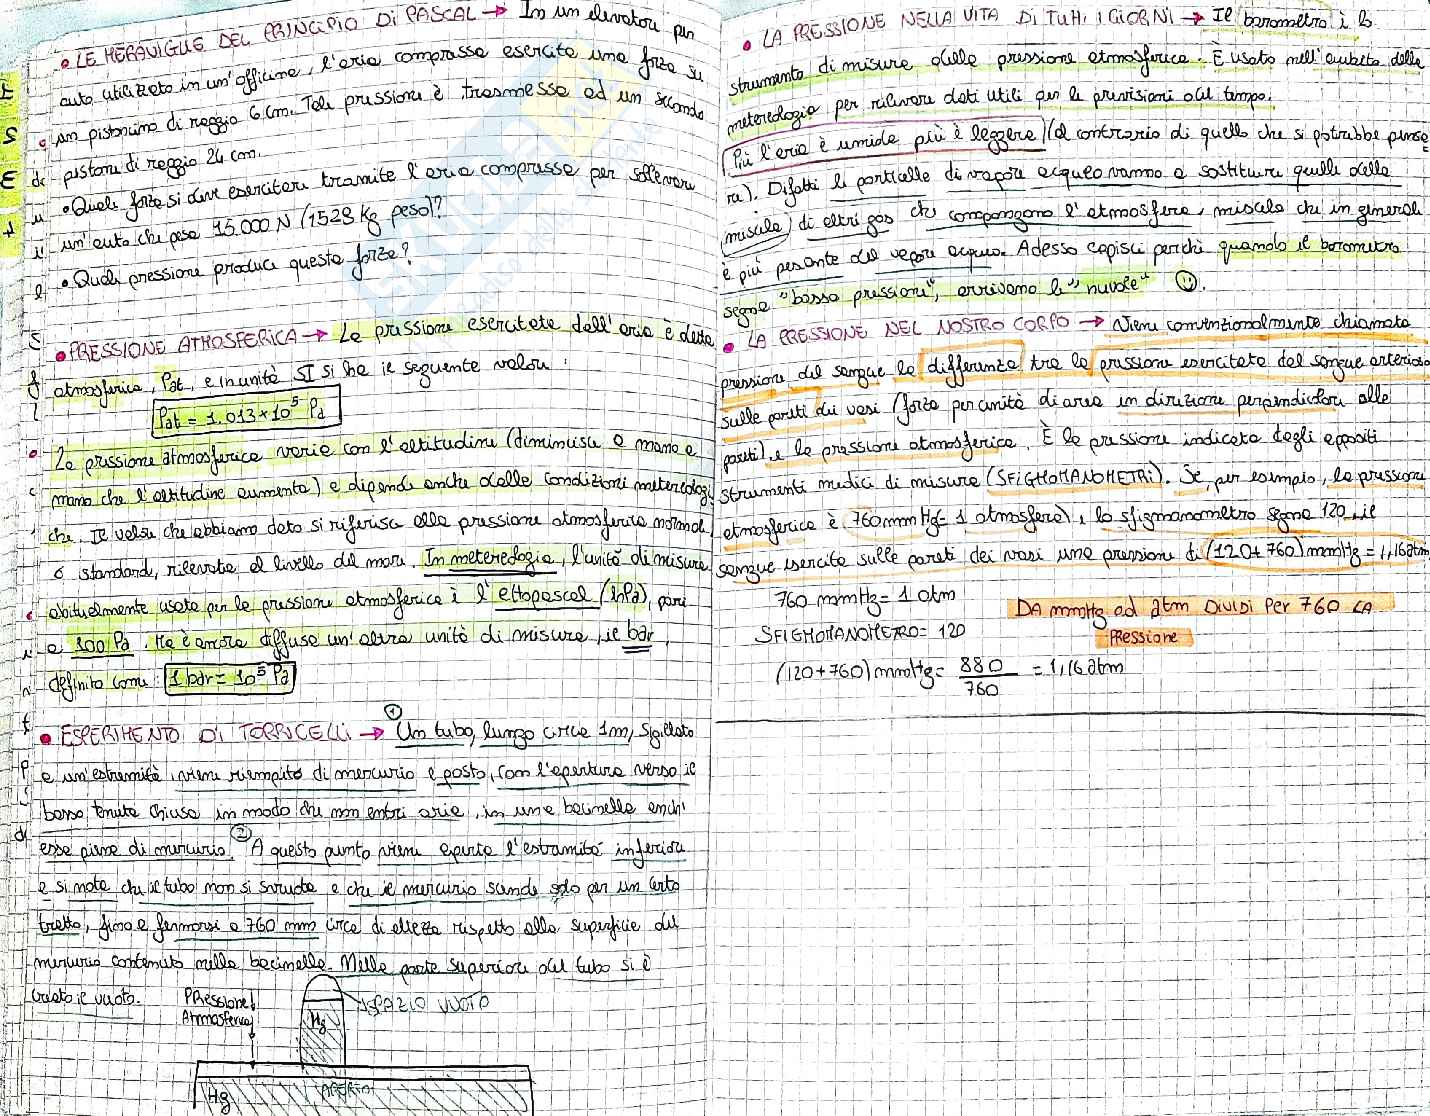 • LE MERAVIGLIE DEL PRINCIPIO DI PASCAL → In un elevatore per
auto utilizzato in un'officina, l'aria compressa esercita una forza su
un pistoncino di raggio 6 cm. Tale pressione è trasmessa ad un secondo
pistone di raggio 24 cm.
• Quale forza si deve esercitare tramite l'aria compressa per sollevare
un'auto che pesa 15.000 N (1528 kg peso)?
• Quale pressione produce questa forza?
• PRESSIONE ATMOSFERICA → La pressione esercitata dall'aria è detta
atmosferica, Pat, e in unità SI si ha il seguente valore:
Pat = 1,013 × 10⁵ Pa
La pressione atmosferica varia con l'altitudine (diminuisce a mano a
mano che l'altitudine aumenta) e dipende anche dalle condizioni metereologi
che. Il valore che abbiamo dato si riferisce alla pressione atmosferica normale,
o standard, rilevata al livello del mare. In metereologia, l'unità di misura
abitualmente usata per la pressione atmosferica è l'ettopascal (hPa), pari
a 100 Pa. Ma è ancora diffusa un'altra unità di misura, il bar,
definito come: 1 bar = 10⁵ Pa
• ESPERIMENTO DI TORRICELLI → ① Un tubo, lungo circa 1m, sigillato
a un'estremità, viene riempito di mercurio e posto, con l'apertura verso il
basso tenuta chiusa in modo che non entri aria, in una bacinella anch'
essa piena di mercurio. ② A questo punto viene aperta l'estremità inferiore
e si nota che il tubo non si svuota e che il mercurio scende solo per un certo
tratto, fino a fermarsi a 760 mm circa di altezza rispetto alla superficie del
mercurio contenuto nella bacinella. Nella parte superiore del tubo si è
creato il vuoto.
PRessione
Atmosferica
SPAZIO VUOTO
Hg
APERTO
Hg
• LA PRESSIONE NELLA VITA DI TUTTI I GIORNI → Il barometro è lo
strumento di misura della pressione atmosferica. È usato nell'ambito della
metereologia per rilevare dati utili per le previsioni del tempo.
Più l'aria è umida più è leggera (al contrario di quello che si potrebbe pensa
re). Difatti le particelle di vapore acqueo vanno a sostituire quelle della
miscela di altri gas che compongono l'atmosfera, miscela che in generale
è più pesante del vapore acqueo. Adesso capisci perché quando il barometro
segna "bassa pressione", arrivano le "nuvole" ☺.
• LA PRESSIONE NEL NOSTRO CORPO → Viene convenzionalmente chiamata
pressione del sangue la differenza tra la pressione esercitata dal sangue arterioso
sulle pareti dei vasi (forza per unità di area in direzione perpendicolare alle
pareti) e la pressione atmosferica. È la pressione indicata dagli appositi
strumenti medici di misura (SFIGMOMANOMETRI). Se, per esempio, la pressione
atmosferica è 760 mmHg (= 1 atmosfera), lo sfigmanometro segna 120, il
sangue esercita sulle pareti dei vasi una pressione di (120+760) mmHg = 1,16 atm
760 mmHg = 1 atm
DA mmHg ad atm DIVIDI PER 760 LA
PRessione
SFIGMOMANOMETRO = 120
(120+760) mmHg = 880/760 = 1,16 atm